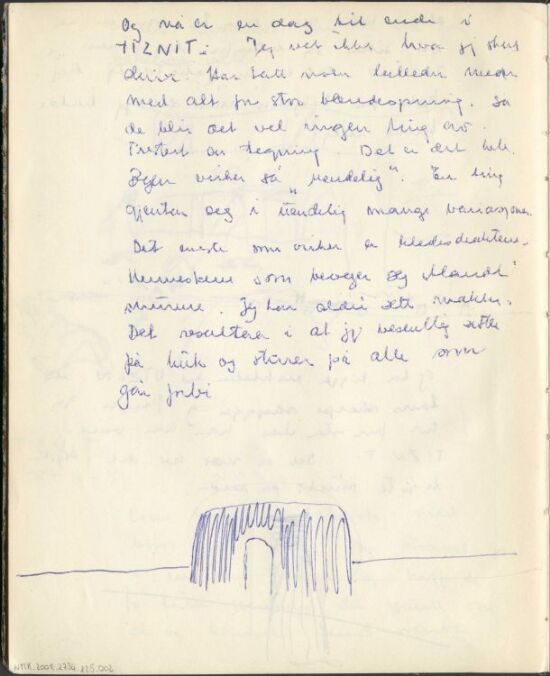 Og nå er en dag til ende i
TIZNIT. Jeg vet ikke hva jeg skal
skrive. Har tatt noen billeder
med alt for stor blendeåpning. Så
de blir det vel ingen ting av.
tegning. Det er det hele.
Byen virker så "uendelig". En ting
gjentar seg i uendelig mange variasjoner.
Det eneste som virker er klededraktene.
Menneskene som beveger seg blandt
murene. Jeg har aldri sett maken.
Det resulterer i at jeg
på huk og stirrer på alle som
går forbi
NMK.2008.2734.125.002